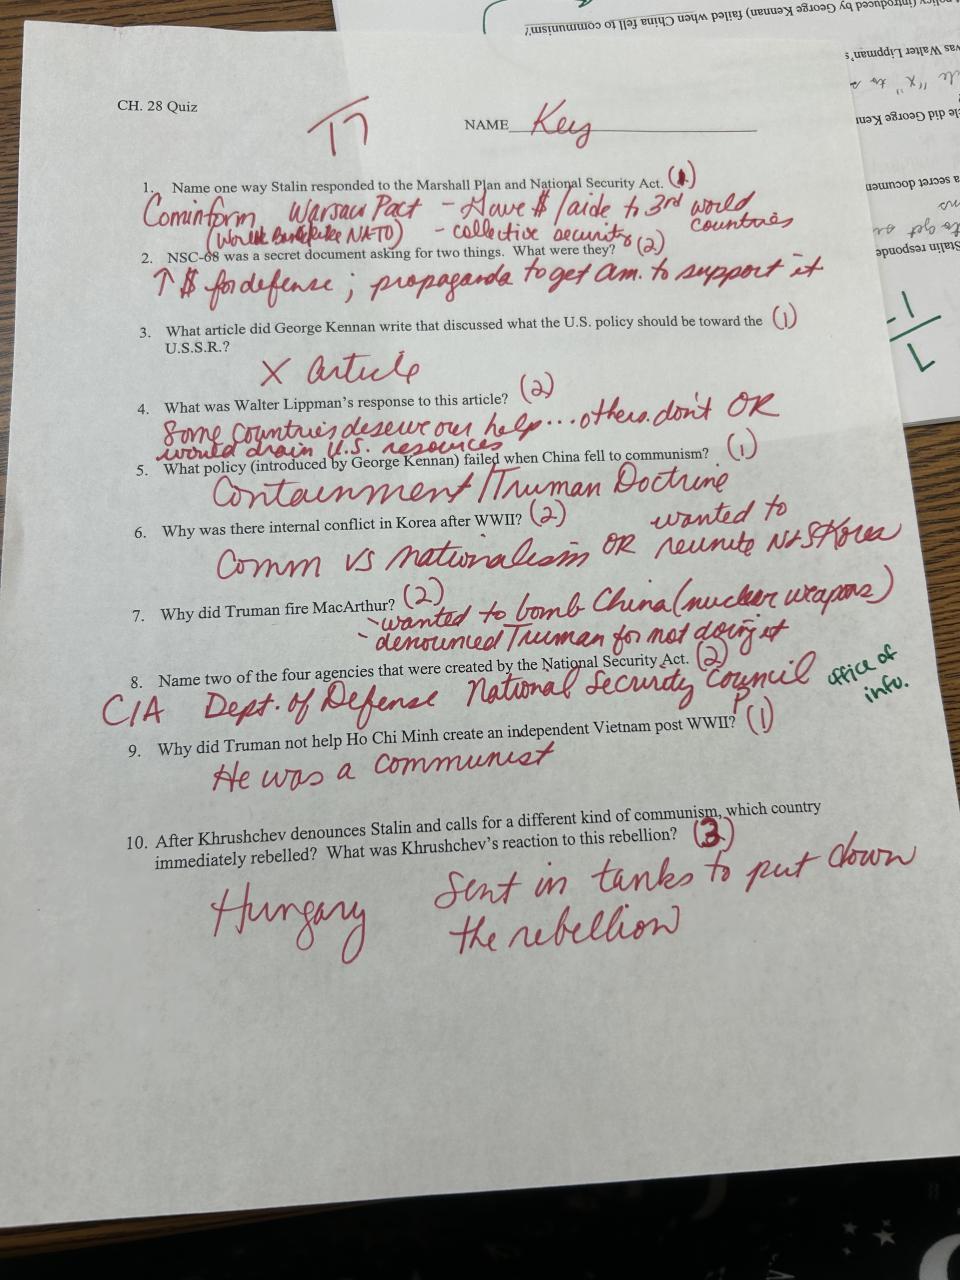 CH. 28 Quiz
17
NAME Key
1. Name one way Stalin responded to the Marshall Plan and National Security Act. (1)
Cominform Warsaw Pact - Gave $/aide to 3rd world countries
(World Bank like NATO) - collective security
2. NSC-68 was a secret document asking for two things. What were they? (2)
↑ $ for defense ; propaganda to get am. to support it
3. What article did George Kennan write that discussed what the U.S. policy should be toward the (1)
U.S.S.R.?
X article
4. What was Walter Lippman's response to this article? (2)
Some countries deserve our help... others don't OR
would drain U.S. resources
5. What policy (introduced by George Kennan) failed when China fell to communism? (1)
Containment/Truman Doctrine
6. Why was there internal conflict in Korea after WWII? (2)
Comm vs nationalism OR wanted to reunite N+S Korea
7. Why did Truman fire MacArthur? (2)
- wanted to bomb China (nuclear weapons)
- denounced Truman for not doing it
8. Name two of the four agencies that were created by the National Security Act. (2)
CIA Dept. of Defense National Security Council office of info.
9. Why did Truman not help Ho Chi Minh create an independent Vietnam post WWII? (1)
He was a communist
10. After Khrushchev denounces Stalin and calls for a different kind of communism, which country
immediately rebelled? What was Khrushchev's reaction to this rebellion? (3)
Hungary Sent in tanks to put down
the rebellion
(introduced by George Kennan) failed when China fell to communism?
was Walter Lippman's
"X"
did George Kenn
a secret documen
to get
Stalin responde
-1